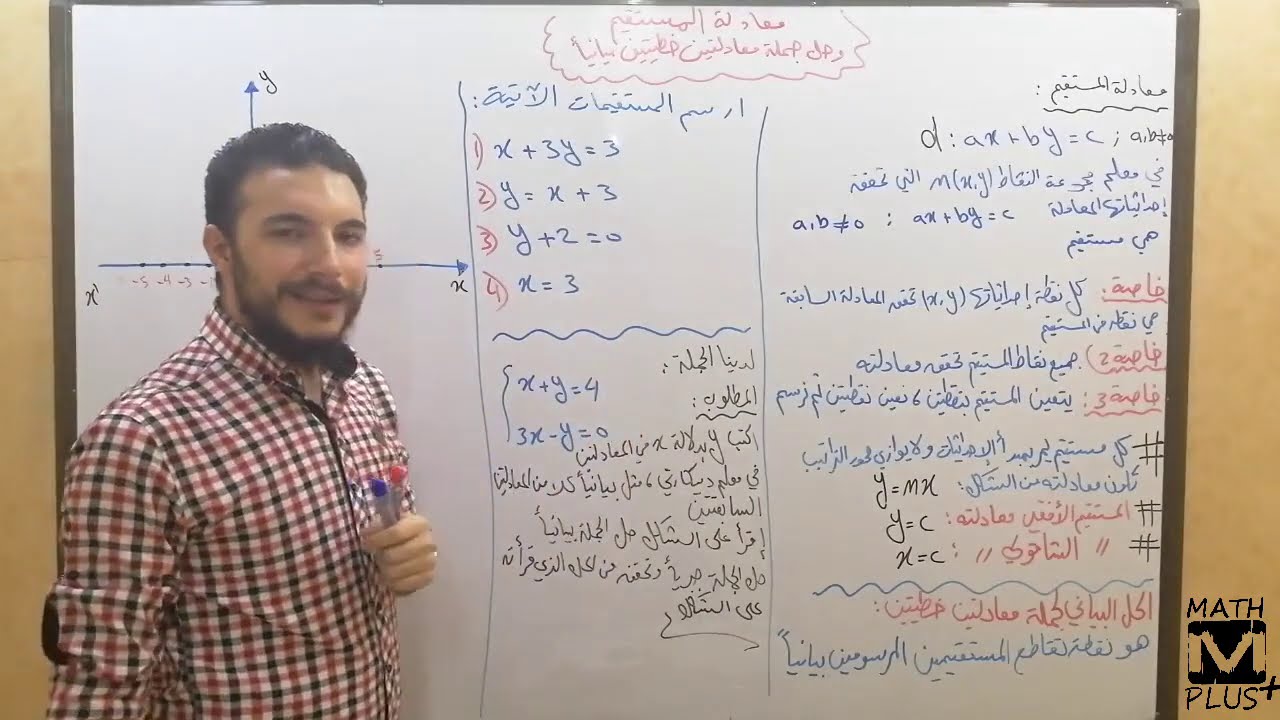 معادلة المستقيم
وحل جملة معادلتين خطيتين بيانياً
معادلة المستقيم :
d : ax + by = c ; a,b ≠ 0
في معلم مجموعة النقاط M(x,y) التي تحقق
إحداثياتها المعادلة ax + by = c : a,b ≠ 0
هي مستقيم
خاصة : كل نقطة إحداثياتها (x,y) تحقق المعادلة السابقة
هي نقطة من المستقيم
خاصة 2) جميع نقاط المستقيم تحقق معادلته
خاصة 3 : يتعين المستقيم بنقطتين ، نعين نقطتين ثم نرسم
# كل مستقيم يمر بمبدأ الإحداثيات ولا يوازي محور التراتيب
تكون معادلته من الشكل : y = mx
# المستقيم الأفقي معادلته : y = c
# " الشاقولي " : x = c
الحل البياني لجملة معادلتين خطيتين :
هو نقطة تقاطع المستقيمين المرسومين بيانياً
ارسم المستقيمات الآتية :
1) x + 3y = 3
2) y = x + 3
3) y + 2 = 0
4) x = 3
لدينا الجملة :
x + y = 4
3x - y = 0
المطلوب :
اكتب y بدلالة x في المعادلتين
في معلم ديكارتي ، مثل بيانياً كلا من المعادلتين
السابقتين
إقرأ على الشكل حل الجملة بيانياً
حل الجملة جبرياً وتحقق من الحل الذي قرأته
على الشكل
y
x' -5 -4 -3 5 x
MATH
M
PLUS+